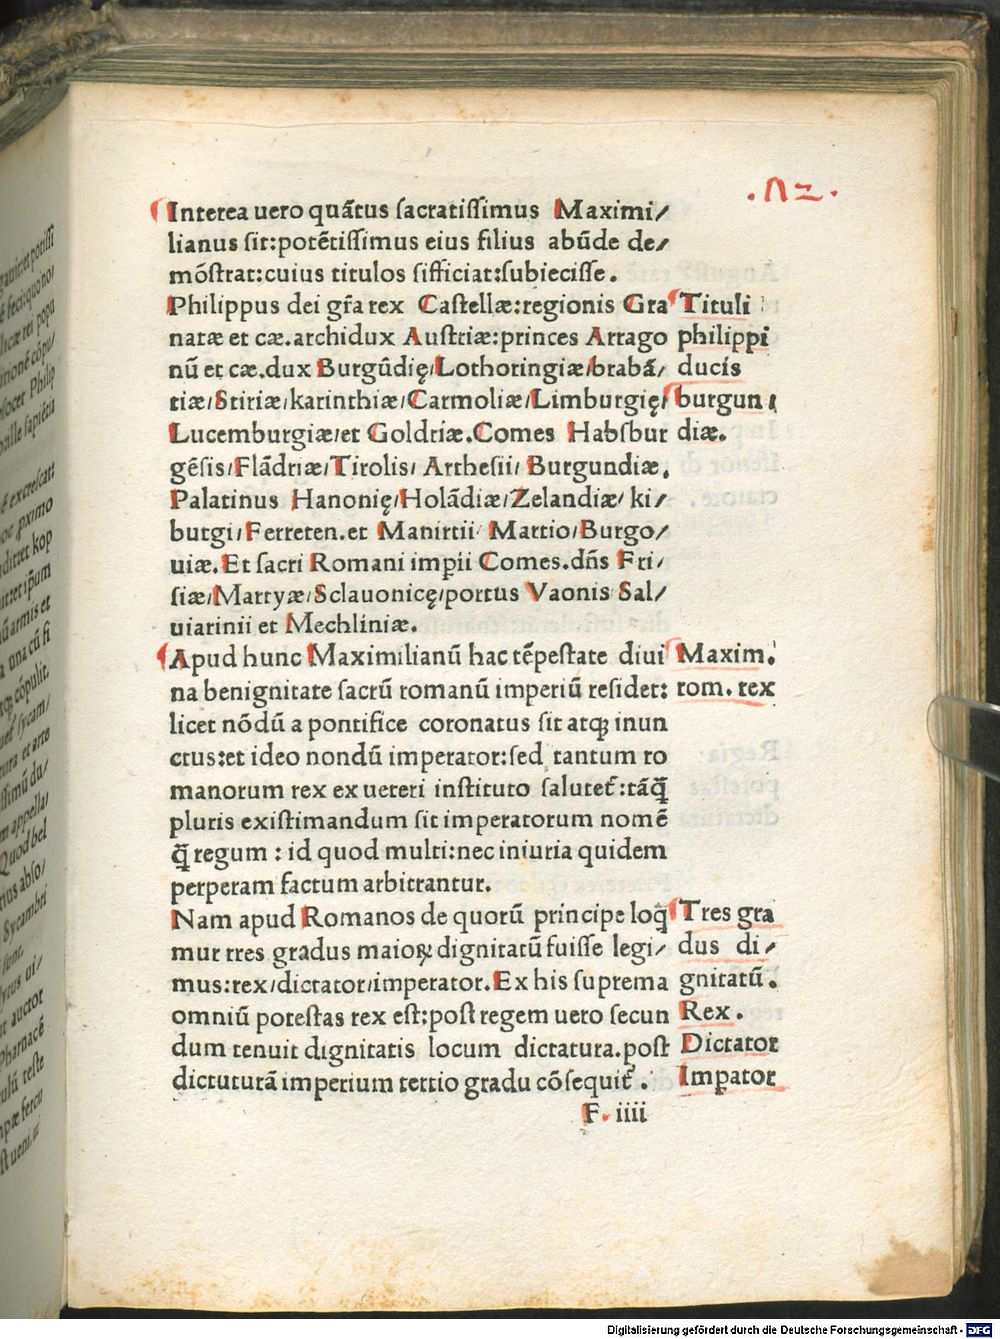 .nz.
Interea uero quãtus sacratissimus Maximi/
lianus sit:potẽtissimus eius filius abũde de/
mõstrat:cuius titulos sifficiat:subiecisse.
Philippus dei gr̃a rex Castellæ:regionis Gra
natæ et cæ.archidux Austriæ:princes Arrago
nũ et cæ.dux Burgũdię/Lothoringiæ/brabã/
tiæ/Stiriæ/karinthiæ/Carmoliæ/Limburgię/
Lucemburgiæ/et Goldriæ.Comes Habsbur
gẽsis/Flãdriæ/Tirolis/ Arthesii/ Burgundiæ.
Palatinus Hanonię/Holãdiæ/Zelandiæ/ ki/
burgi/Ferreten.et Manirtii Martio/Burgo/
uiæ.Et sacri Romani impii Comes.dñs Fri/
siæ/Martyæ/Sclauonicę/portus Vaonis Sal/
uiarinii et Mechliniæ.
Tituli
philippi
ducis
burgun
diæ.
Apud hunc Maximilianũ hac tẽpestate diui
na benignitate sacrũ romanũ imperiũ residet:
licet nõdũ a pontifice coronatus sit atqꝫ inun
ctus:et ideo nondũ imperator:sed tantum ro
manorum rex ex ueteri instituto salutet᷑:tãq̃
pluris existimandum sit imperatorum nomẽ
q̃ regum : id quod multi:nec iniuria quidem
perperam factum arbitrantur.
Maxim.
rom. rex
Nam apud Romanos de quorũ principe loq̃
mur tres gradus maioꝝ dignitatũ fuisse legi/
mus:rex/dictator/imperator.Ex his suprema
omniũ potestas rex est:post regem uero secun
dum tenuit dignitatis locum dictatura.post
dictuturã imperium tertio gradu cõsequit᷑.
Tres gra
dus di/
gnitatũ.
Rex.
Dictator
Imꝑator
F. iiii
Digitalisierung gefördert durch die Deutsche Forschungsgemeinschaft - DFG